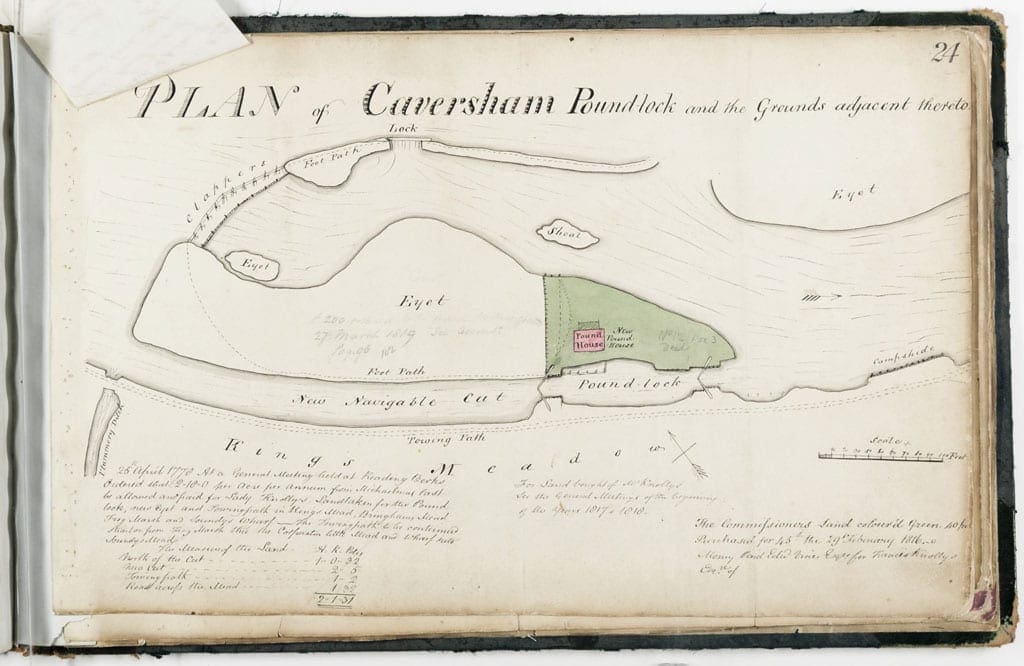 24
PLAN of Caversham Poundlock and the Grounds adjacent thereto.
Lock
Foot Path
Clappers
Eyot
Eyet
Shoal
Eyet
27 March 1819 See
Pound House
New Pound House
Campshide
Foot Path
Pound-lock
New Navigable Cut
Towing Path
Plummery Ditch
Kings Meadow
Scale
Feet
25th April 1778 At a General Meeting held at Reading Berks
Ordered that 2-10-0 per Acre per Annum from Michaelmas last
be allowed and paid for Lady Knollys Land taken for the Pound
lock, new Eyet and Towing path in Kings Mead, Bringhams Mead
Frog Marsh and Soundys Wharf — The Towing path to be continued
from Frog Marsh thro' the Corporation little Mead and Wharf into
Soundys Mead
The Measure of the Land - A. R. Ples
North of the Cut - 1-0-32
New Cut - 2-5
Towing path - 1-
Road across the Mead -
2-1-31
For Land bought of Mr Knollys
See the General Meetings of the beginning
of the Years 1817 & 1818.
The Commissioners Land colour'd Green
Purchased for 45£ the 29th February 1816
Money Paid for Francis Knollys
Esqre